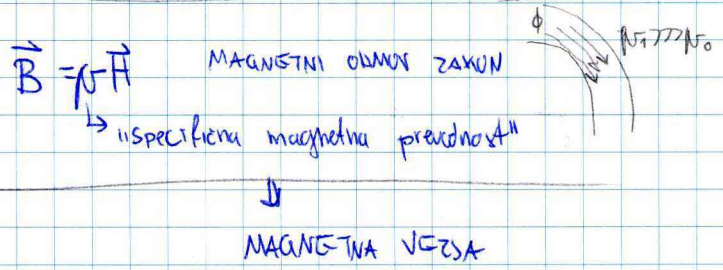 ϕ
μ₁>>>μ₀
B⃗ = μ H⃗ MAGNETNI OHMOV ZAKON
↳ "specifična magnetna prevodnost"
⇓
MAGNETNA VEZJA